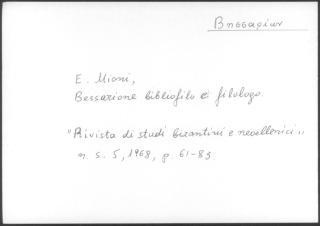 Βησσαρίων
E. Mioni,
Bessarione bibliofilo e filologo.
"Rivista di studi bizantini e neoellenici"
n. s. 5, 1968, p. 61-83